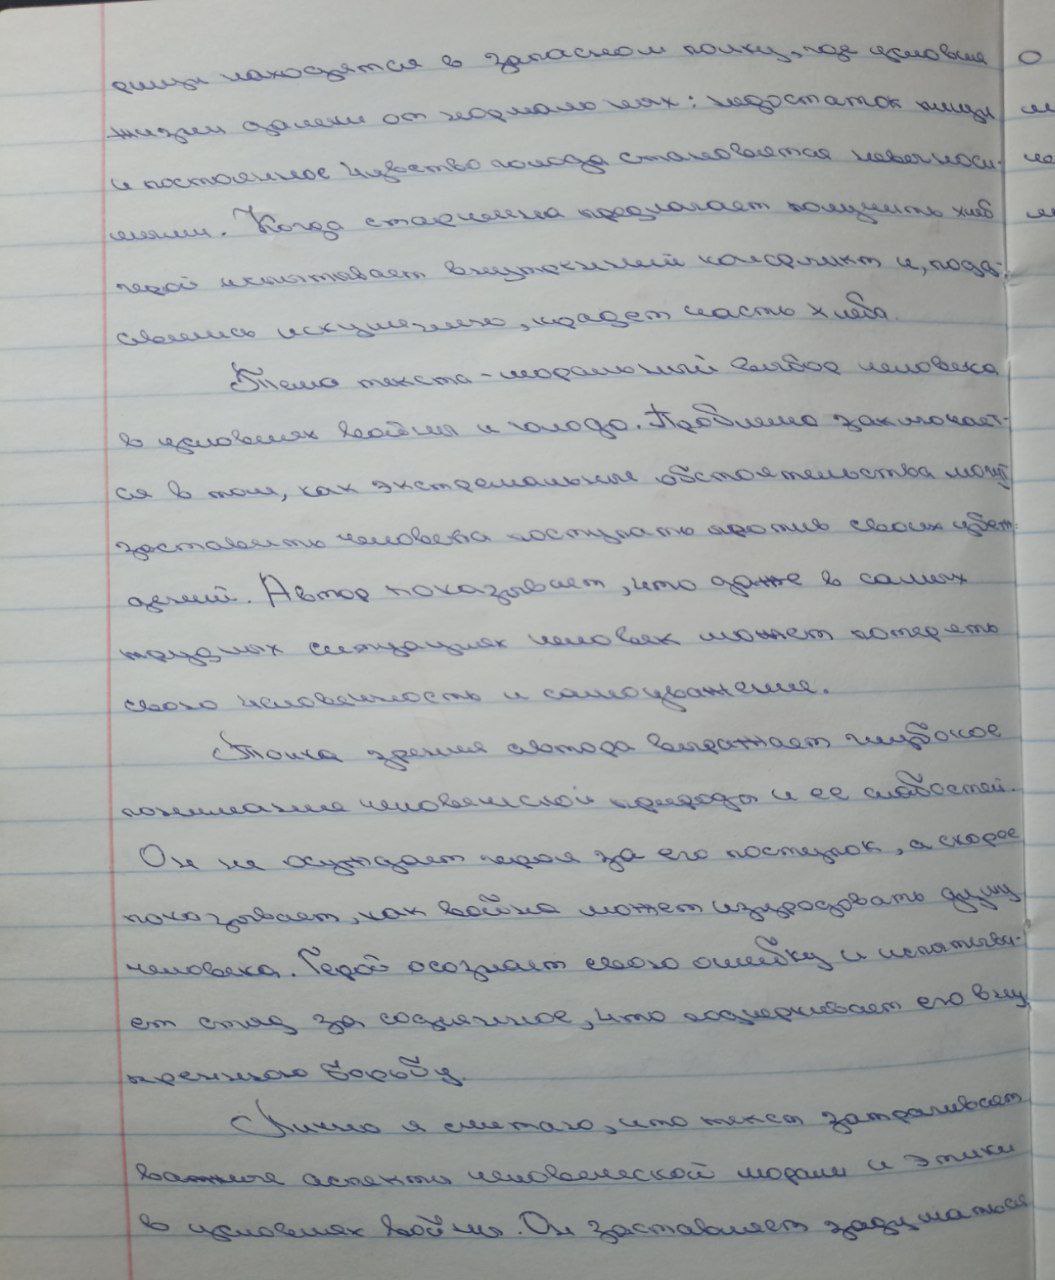 рищи находятся в запасном полку, где условия
жизни далеки от нормальных: недостаток пищи
и постоянное чувство голода становятся невыноси-
мыми. Когда старшина предлагает получить хлеб
герой испытывает внутренний конфликт и, подда-
вшись искушению, крадет часть хлеба.
Тема текста - моральный выбор человека
в условиях войны и голода. Проблема заключает-
ся в том, как экстремальные обстоятельства могут
заставить человека поступать против своих убеж-
дений. Автор показывает, что даже в самых
трудных ситуациях человек может потерять
свою человечность и самоуважение.
Точка зрения автора выражает глубокое
понимание человеческой природы и ее слабостей.
Он не осуждает героя за его поступок, а скорее
показывает, как война может изуродовать душу
человека. Герой осознает свою ошибку и испытыва-
ет стыд за содеянное, что подчеркивает его внут
реннюю борьбу.
Лично я считаю, что текст затрагивает
важные аспекты человеческой морали и этики
в условиях войны. Он заставляет задуматься